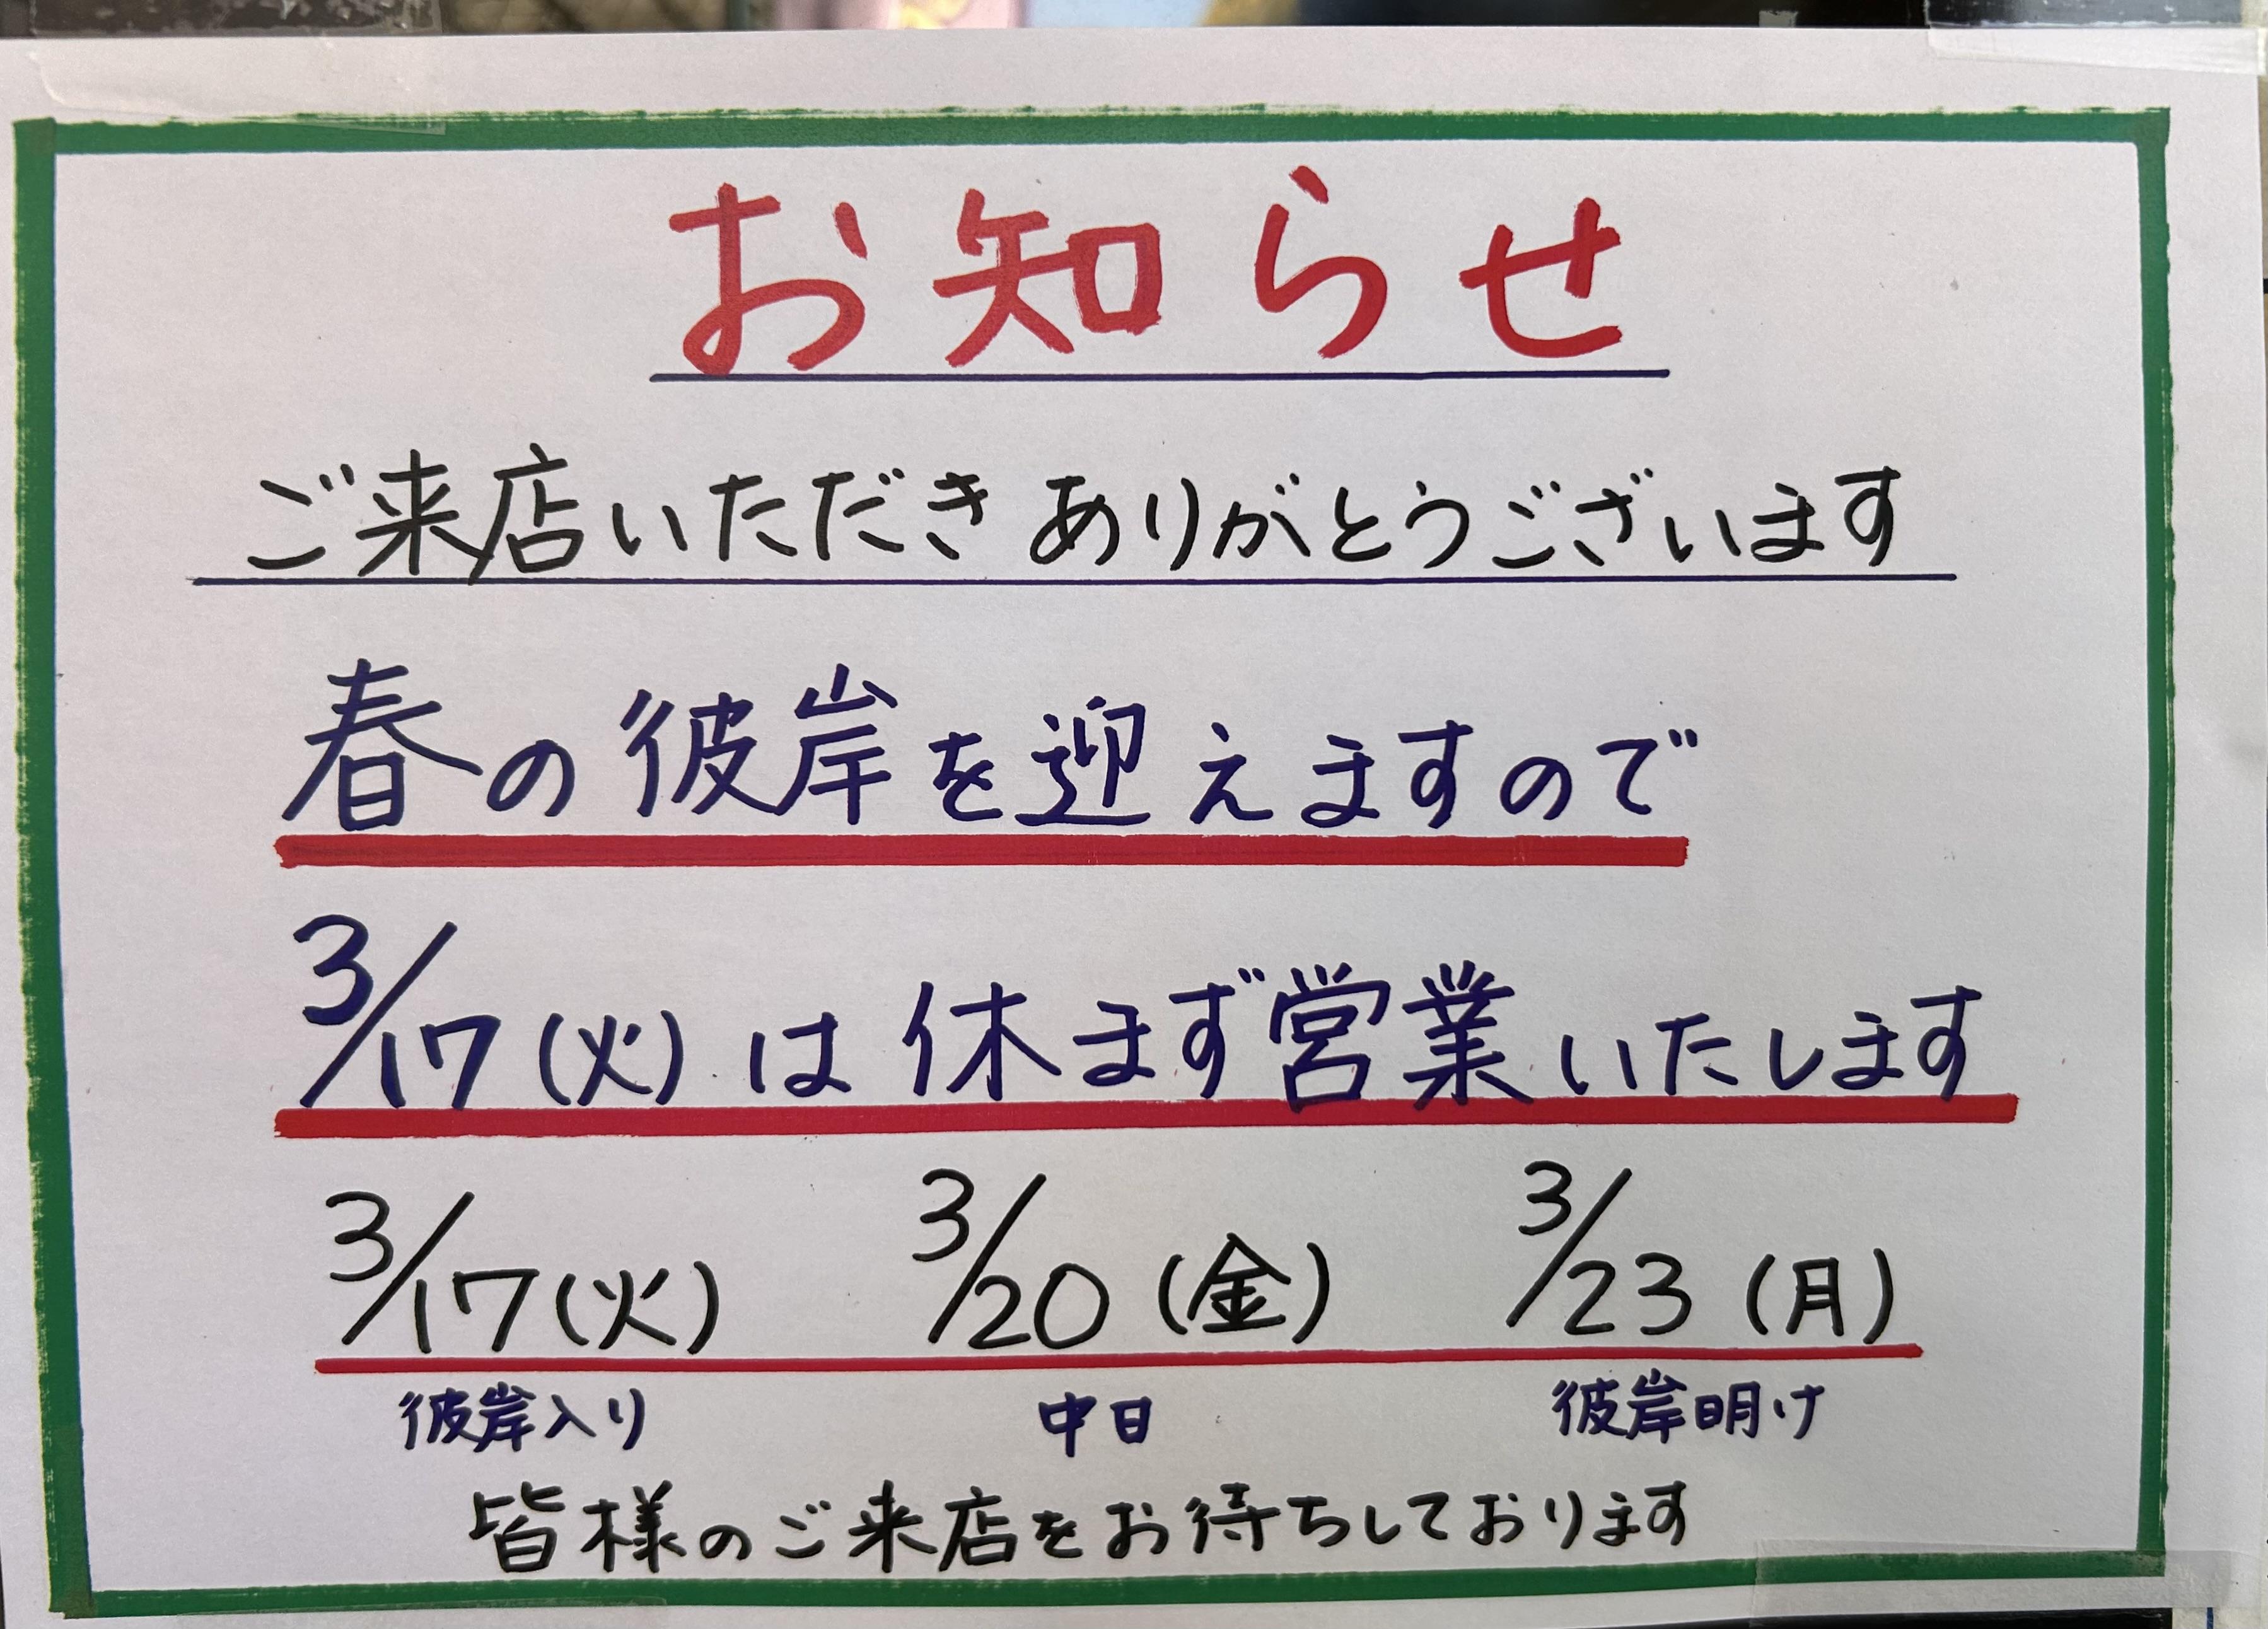 お知らせ
ご来店いただきありがとうございます
春の彼岸を迎えますので
3/17(火)は休まず営業いたします
3/17(火) 3/20(金) 3/23(月)
彼岸入り 中日 彼岸明け
皆様のご来店をお待ちしております